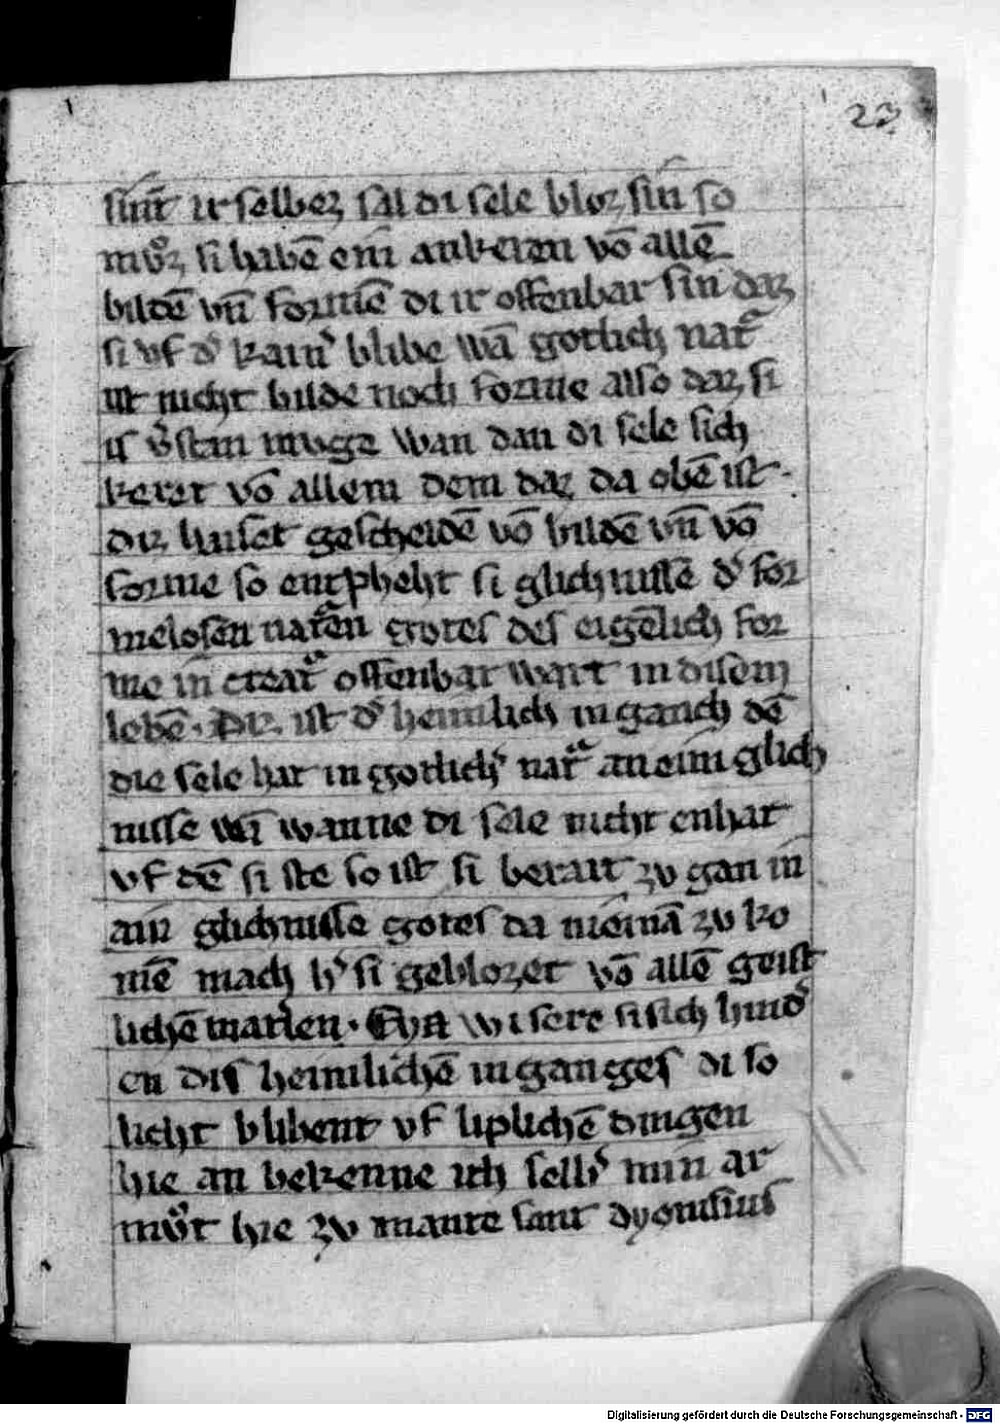 23
sint ir selbez sal di sele bloz sin so
mvͦz si habē ein ankeren vō allē
bildē vn̄ formē di ir offenbar sin daz
si vf dˀ kainˀ blibe wā gotlich natᵃ
ist nicht bilde noch forme also daz si
iſ vˀstan muge wan dan di sele sich
keret vō allem dem daz da obē ist.
diz haiset gescheidē vō bildē vn̄ vō
forme so entpheht si glichnissē dˀ for
melosen natᵃen gotes des eigēlich for
me in creatᵃ offenbar wart in disem
lebē. Diz ist dˀ heimlich inganch dē
die sele hat in gotlichˀ natᵃ an eim glich
nisse wā wanne di sele nicht enhat
vf dē si ste so ist si berait zv gan in
ain glichnisse gotes da nieinā zv ko
mē mach hˀ si geblozet vō allē geist
lichē matˀien. Eya wi sere si sich hindˀ
en dis heimlichē inganges di so
licht blibent vf liplichē dingen
hie an bekenne ich selbˀ min ar
mvͦt hie zv mante sant dyonisius
Digitalisierung gefördert durch die Deutsche Forschungsgemeinschaft - DFG